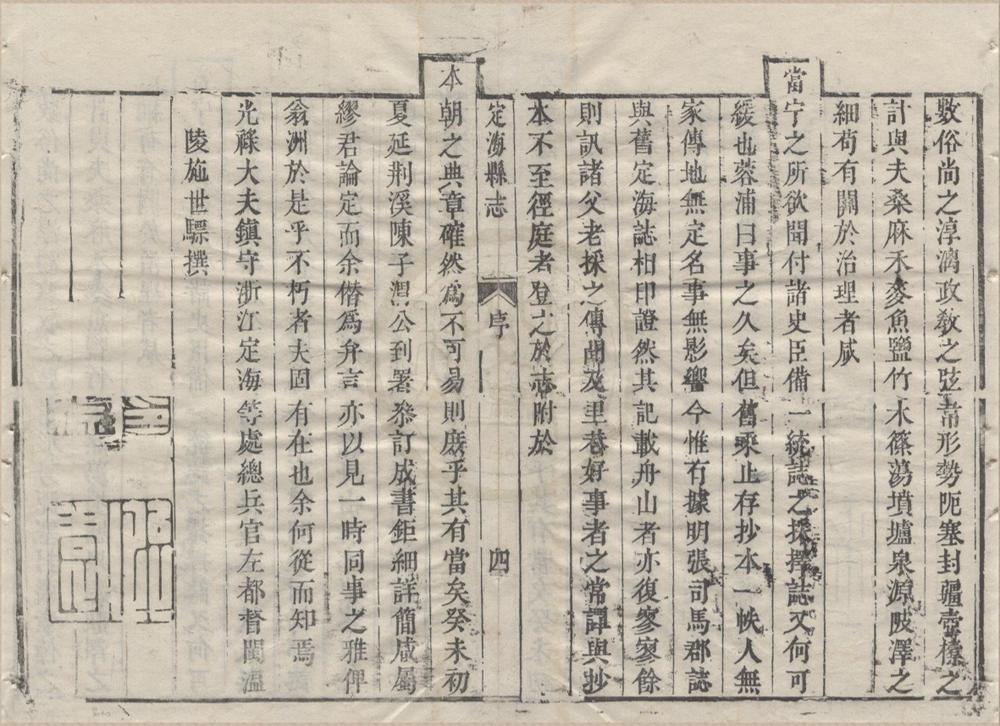 數俗尚之淳漓政教之弦韋形勢阨塞封疆壺榼之
計與夫桑麻禾麥魚鹽竹木篠蕩墳壚泉源陂澤之
細苟有關於治理者咸
當宁之所欲聞付諸史臣備一統誌之採擇誌又何可
緩也蓉浦曰事之久矣但舊乘止存抄本一帙人無
家傳地無定名事無影響今惟有據明張司馬郡誌
與舊定海誌相印證然其記載舟山者亦復寥寥餘
則訊諸父老採之傳聞及里巷好事者之常譚與抄
本不至徑庭者登之於志附於
定海縣志
序
四
本朝之典章確然爲不可易則庶乎其有當矣癸未初
夏延荆溪陳子澗公到署叅訂成書鉅細詳簡咸屬
繆君論定而余僣爲弁言亦以見一時同事之雅俾
翁洲於是乎不朽者夫固有在也余何從而知焉
光祿大夫鎮守浙江定海等處總兵官左都督閩溫
陵施世驃撰